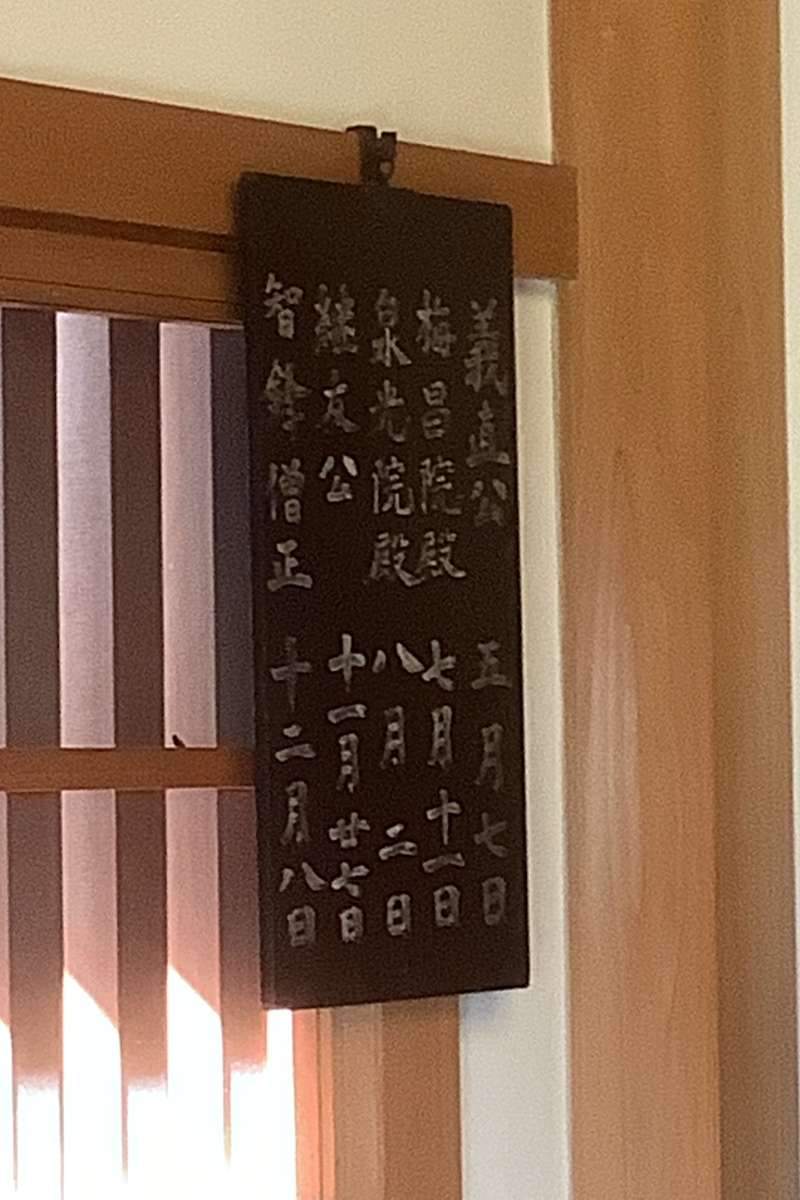 義直公 五月七日
梅昌院殿 七月十一日
泉光院殿 八月二日
継友公 十一月廿七日
智鋒僧正 十二月八日